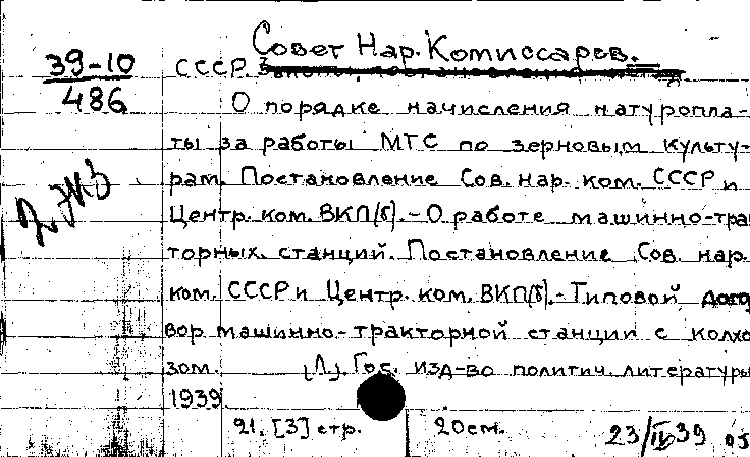 Совет Нар. Комиссаров.
39-10
486
СССР.
О порядке начисления натуропла-
ты за работы МТС по зерновым культу-
рам. Постановление Сов. нар. ком. СССР и
Центр. ком. ВКП(б). - О работе машинно-трак
торных станций. Постановление Сов. нар.
ком. СССР и Центр. ком. ВКП(б). - Типовой дого
вор машинно-тракторной станции с колхо
зом. [Л.], Гос. изд-во политич. литературы
1939.
21, [3] стр. 20 см. 23/IV 39